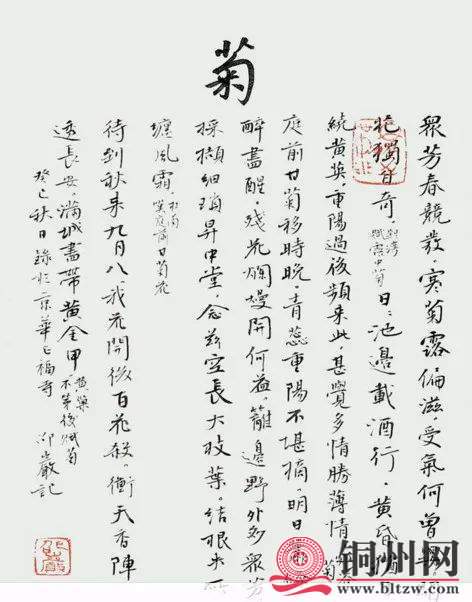 菊
眾芳春競發，寒菊露偏滋，受氣何曾
花獨自奇，
賦露中菊
日日池邊載酒行，黄昏猶
繞黄英，重陽過後頻来此，甚覺多情勝薄情
菊
庭前甘菊移時晚，青蕊重陽不堪摘，明日
醉盡醒，殘花爛熳開何益，籬邊野外多眾芳
採擷細瑣昇中堂，念兹空長大枝葉，結根失所
纏風霜，
杜甫
嘆庭前甘菊花
待到秋来九月八我花開後百花殺，衝天香陣
透長安，滿城盡带黄金甲
黄巢
不第後賦菊
癸巳秋日錄於京華
福寺
巖記
铜州网
www.bltzw.com